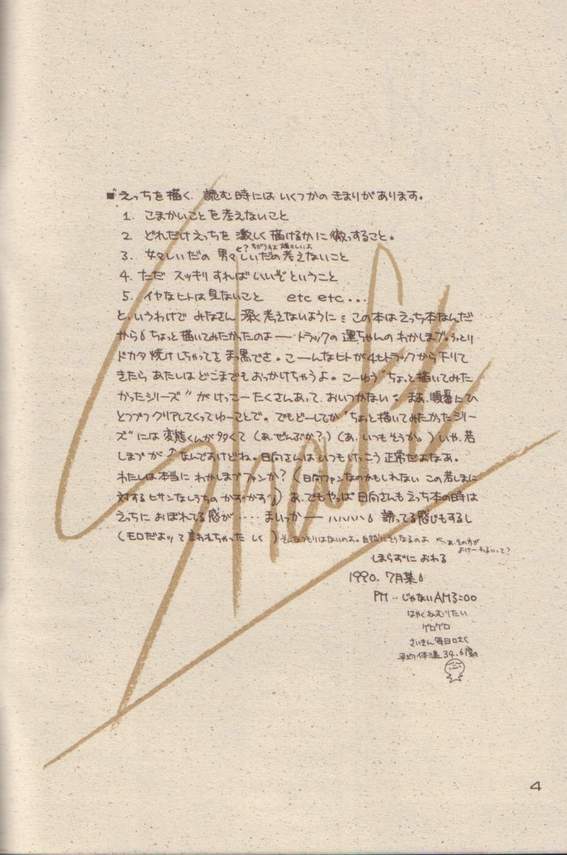 ■ えっちを描く、読む時には いくつかの きまりがあります。
1. こまかいことを考えないこと
2. どれだけえっちを 激しく描けるかに徹っすること。
3. 女々しいだの 男々しいだの考えないこと
4. ただ スッキリすればいいぞ ということ
5. イヤなヒトは見ないこと etc etc...
と、いうわけで みなさん 深く考えないように この本はえっち本なんだ
から ちょっと描いてみたかったのよ ― トラックの運ちゃんの わかしまづ。うっとり
ドカタ焼けしちゃって まっ黒でさ。こーんなヒトが4tトラックから下りて
きたら あたしはどこまでもおっかけちゃうよ。こーゆう"ちょっと描いてみた
かったシリーズ"が けっこーたくさんあって、おいつかない まあ、順番にひ
とつづつクリアしてくってゆーことで。でもどーしてか"ちょっと描いてみたかったシリー
ズ"には変態くんが多くて (あ、ぜんぶか?)(あ、いつもそうか。) いや、若
しまづが なんですけどね。日向さんはいつもけっこう正常だよなあ。
わたしは本当に わかしまづファンか? (日向ファンなのかもしれない この若しまに
対するヒサンなしうちのかずかず) あ、でもやっぱ日向さんもえっち本の時は
えっちに おぼれてる感が ‥‥ まいっかー ハハハハ 誘ってる感じもするし
(モロだよって 言われちゃった しく)
しまらずに おわる
1990. 7月某
PM ‥じゃないAM3:00
はやくねむりたい
ゲログロ
さいきん毎日
平均体温 34.6度
Shoff
4